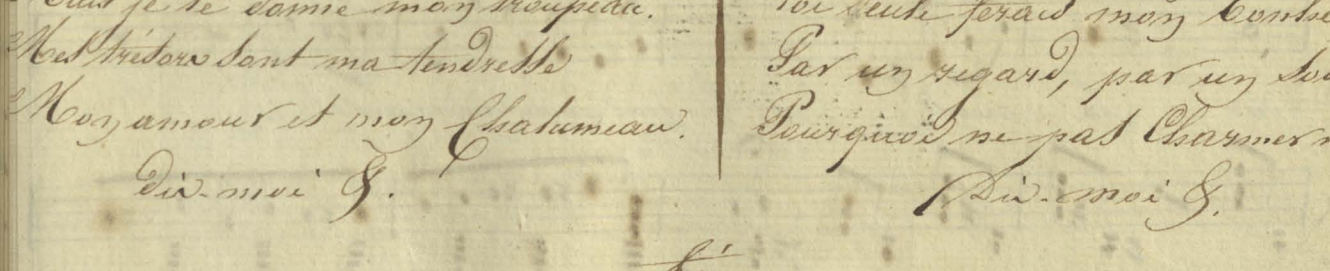 Mais je te donne mon troupeau.
Mes trésors sont ma tendresse
Mon amour et mon Chalumeau.
dis-moi &.
toi seule ferais mon bonhe
Par un regard, par un sou
Pourquoi ne pas Charmer
Dis-moi &.